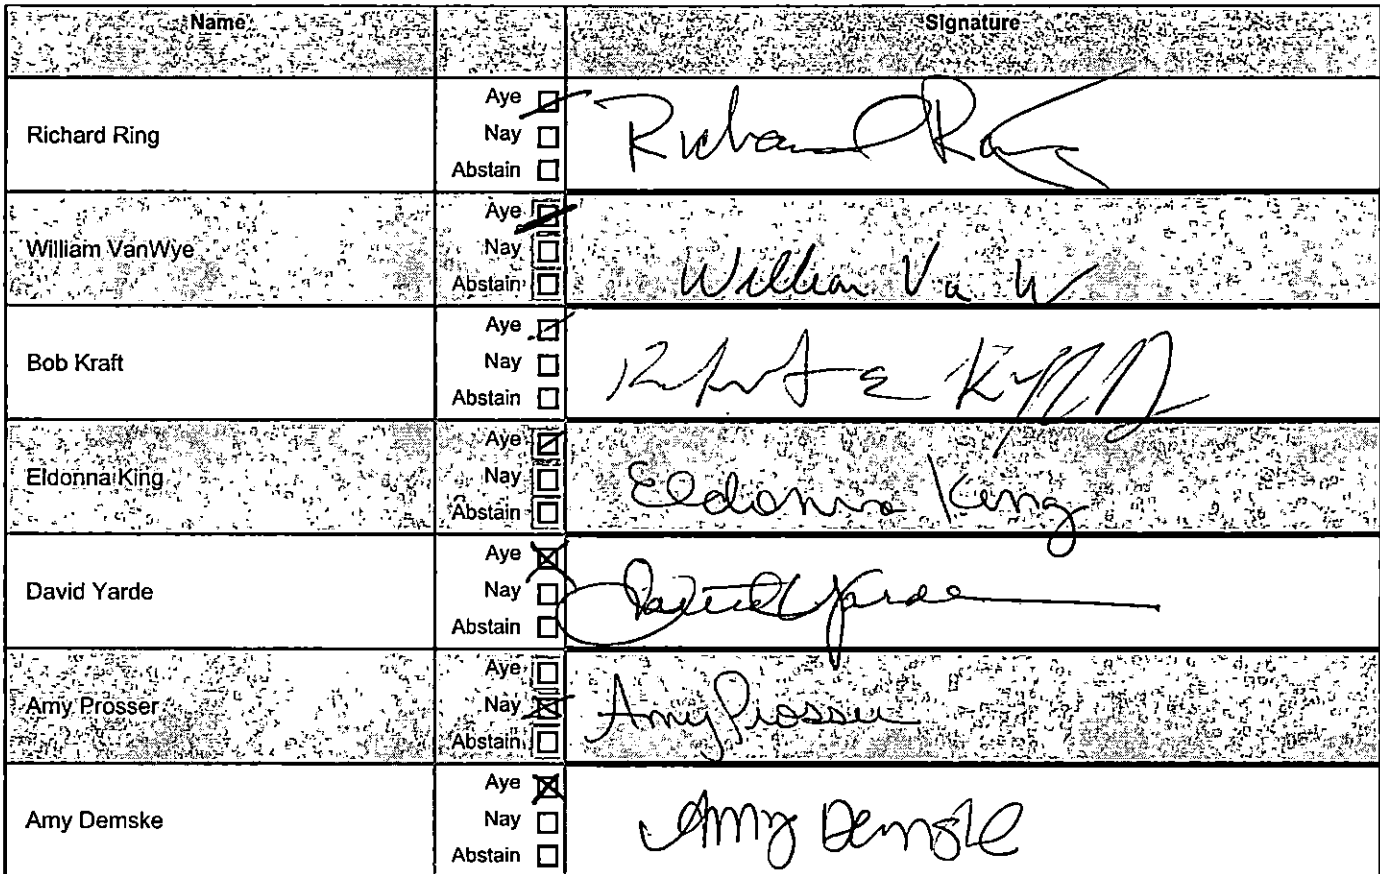 Name Signature
Richard Ring
Aye
Nay
Abstain
Richard Ring
William VanWye
Aye
Nay
Abstain
William Va W
Bob Kraft
Aye
Nay
Abstain
Eldonna King
Aye
Nay
Abstain
Eldonna King
David Yarde
Aye
Nay
Abstain
David Yarde
Amy Prosser
Aye
Nay
Abstain
Amy Prosser
Amy Demske
Aye
Nay
Abstain
Amy Demske